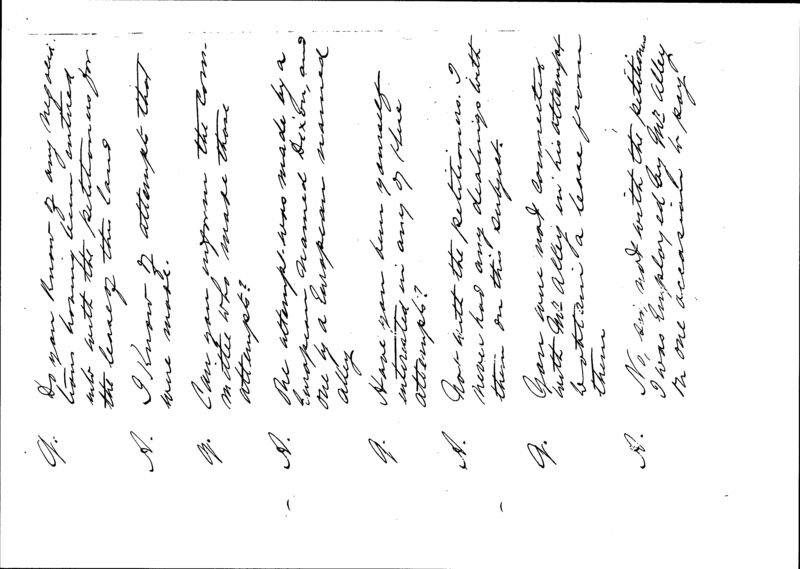 Q. Do you know of any negotia-
tions having been entered
into with the petitioners for
the lease of this land
A. I know of attempts that
were made.
Q. Can you inform the Com-
mittee who made those
attempts?
A. One attempt was made by a
European named Dixon, and
one by a European named
Alley
Q. Have you been yourself
interested in any of these
attempts?
A. Not with the petitioners. I
never had any dealings with
them on this subject.
Q. You were not connected
with Mr Alley in his attempt
to obtain a lease from
them
A. No, sir, not with the petitioners
I was employed by Mr Alley
on one occasion to pay